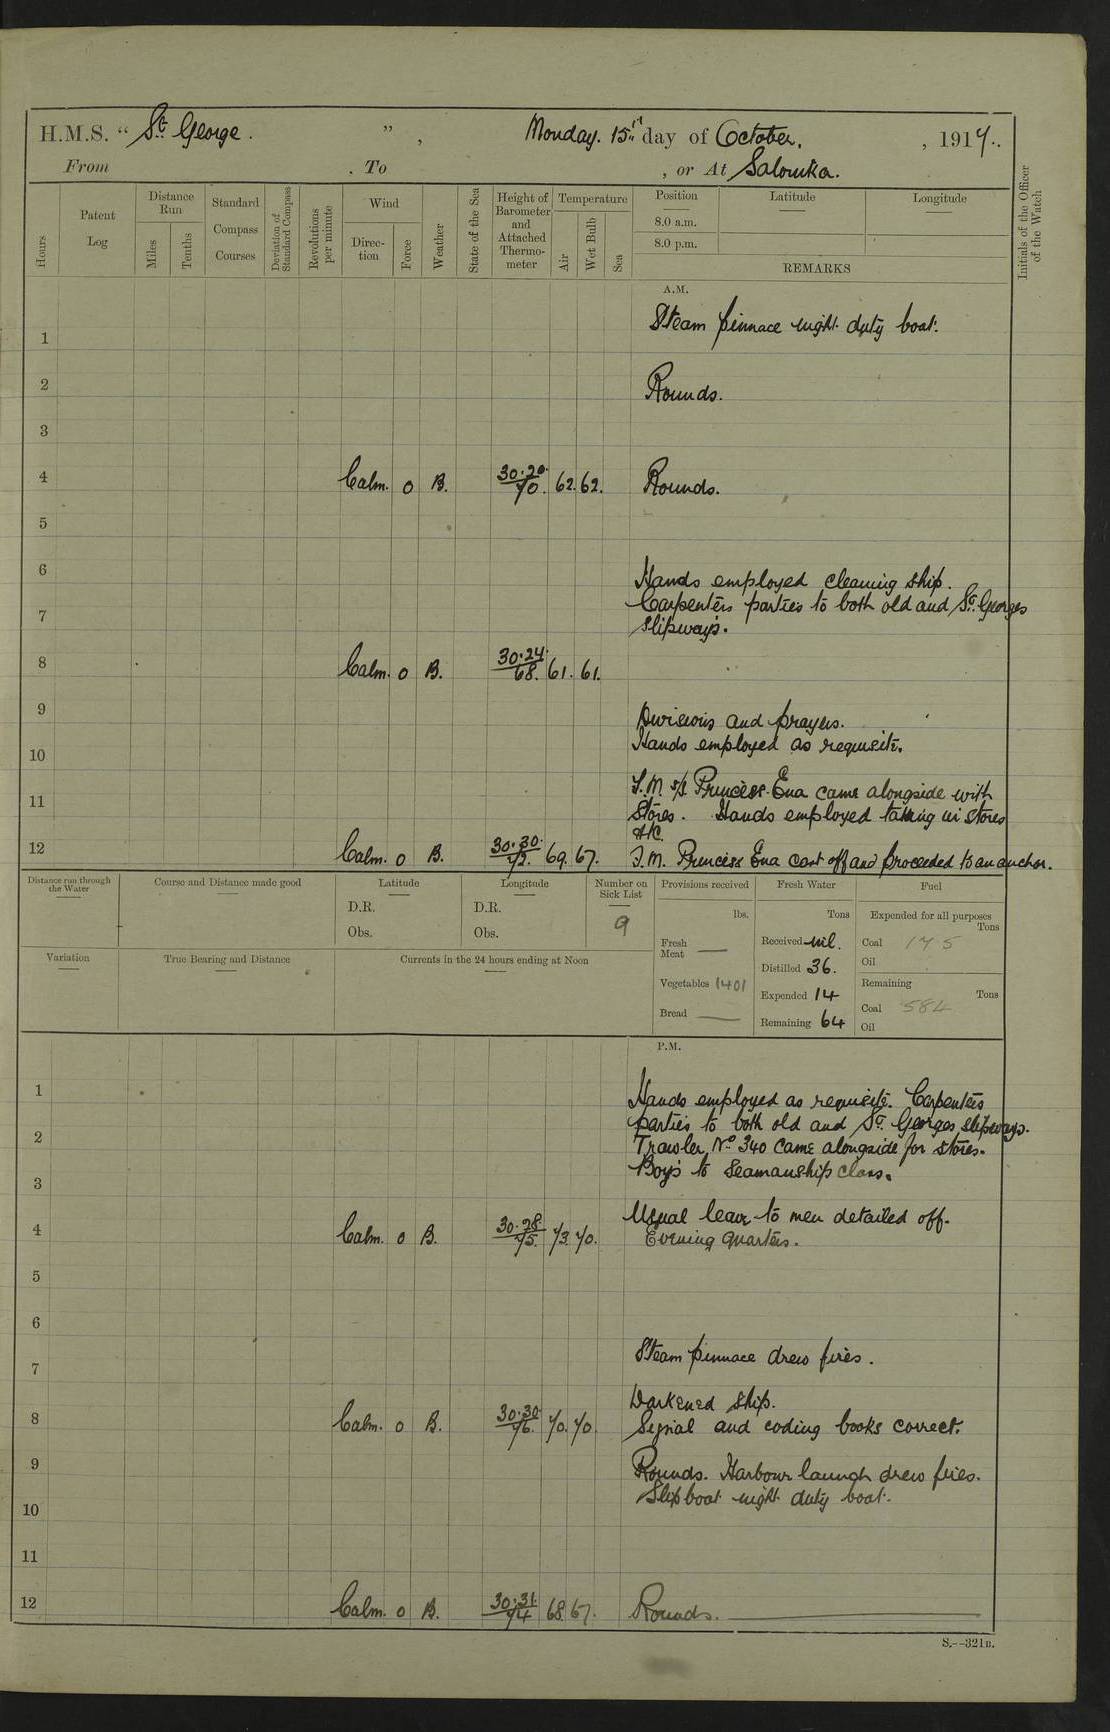 H.M.S. " St George. ", Monday. 15th day of October, 1917.
From . To , or At Salonika.
Hours
Patent Log
Distance Run
Miles
Tenths
Standard Compass Courses
Deviation of Standard Compass
Revolutions per minute
Wind
Direction
Force
Weather
State of the Sea
Height of Barometer and Attached Thermometer
Temperature
Air
Wet Bulb
Sea
Position
8.0 a.m.
8.0 p.m.
Latitude
Longitude
REMARKS
Initials of the Officer of the Watch
A.M.
Steam pinnace night duty boat.
1
2 Rounds.
3
4 Calm. 0 B. 30.20/70. 62. 62. Rounds.
5
6 Hands employed cleaning ship.
Carpenters parties to both old and St. Georges
7 slipways.
8 Calm. 0 B. 30.24/68. 61. 61.
9 Divisions and prayers.
Hands employed as requisite.
10
T.M. s/s Princess Ena came alongside with
11 stores. Hands employed taking in stores
&c.
12 Calm. 0 B. 30.30/72. 69. 67. T.M. Princess Ena cast off and proceeded to an anchor.
Distance run through the Water
Course and Distance made good
Latitude
D.R.
Obs.
Longitude
D.R.
Obs.
Number on Sick List
9
Provisions received
lbs.
Fresh Meat —
Vegetables 1401
Bread —
Fresh Water
Tons
Received nil.
Distilled 36.
Expended 14
Remaining 64
Fuel
Expended for all purposes
Tons
Coal 175
Oil
Remaining
Tons
Coal 584
Oil
Variation
True Bearing and Distance
Currents in the 24 hours ending at Noon
P.M.
1 Hands employed as requisite. Carpenters
parties to both old and St. Georges slipways.
2 Trawler No 340 came alongside for stores.
Boys to Seamanship class.
3
Usual leave to men detailed off.
4 Calm. 0 B. 30.28/75. 73. 70. Evening quarters.
5
6
7 Steam pinnace drew fires.
Darkened ship.
8 Calm. 0 B. 30.30/76. 70. 70. Signal and coding books correct.
9 Rounds. Harbour launch drew fires.
Slip boat night duty boat.
10
11
12 Calm. 0 B. 30.31/74 68. 67. Rounds.
S.—321B.